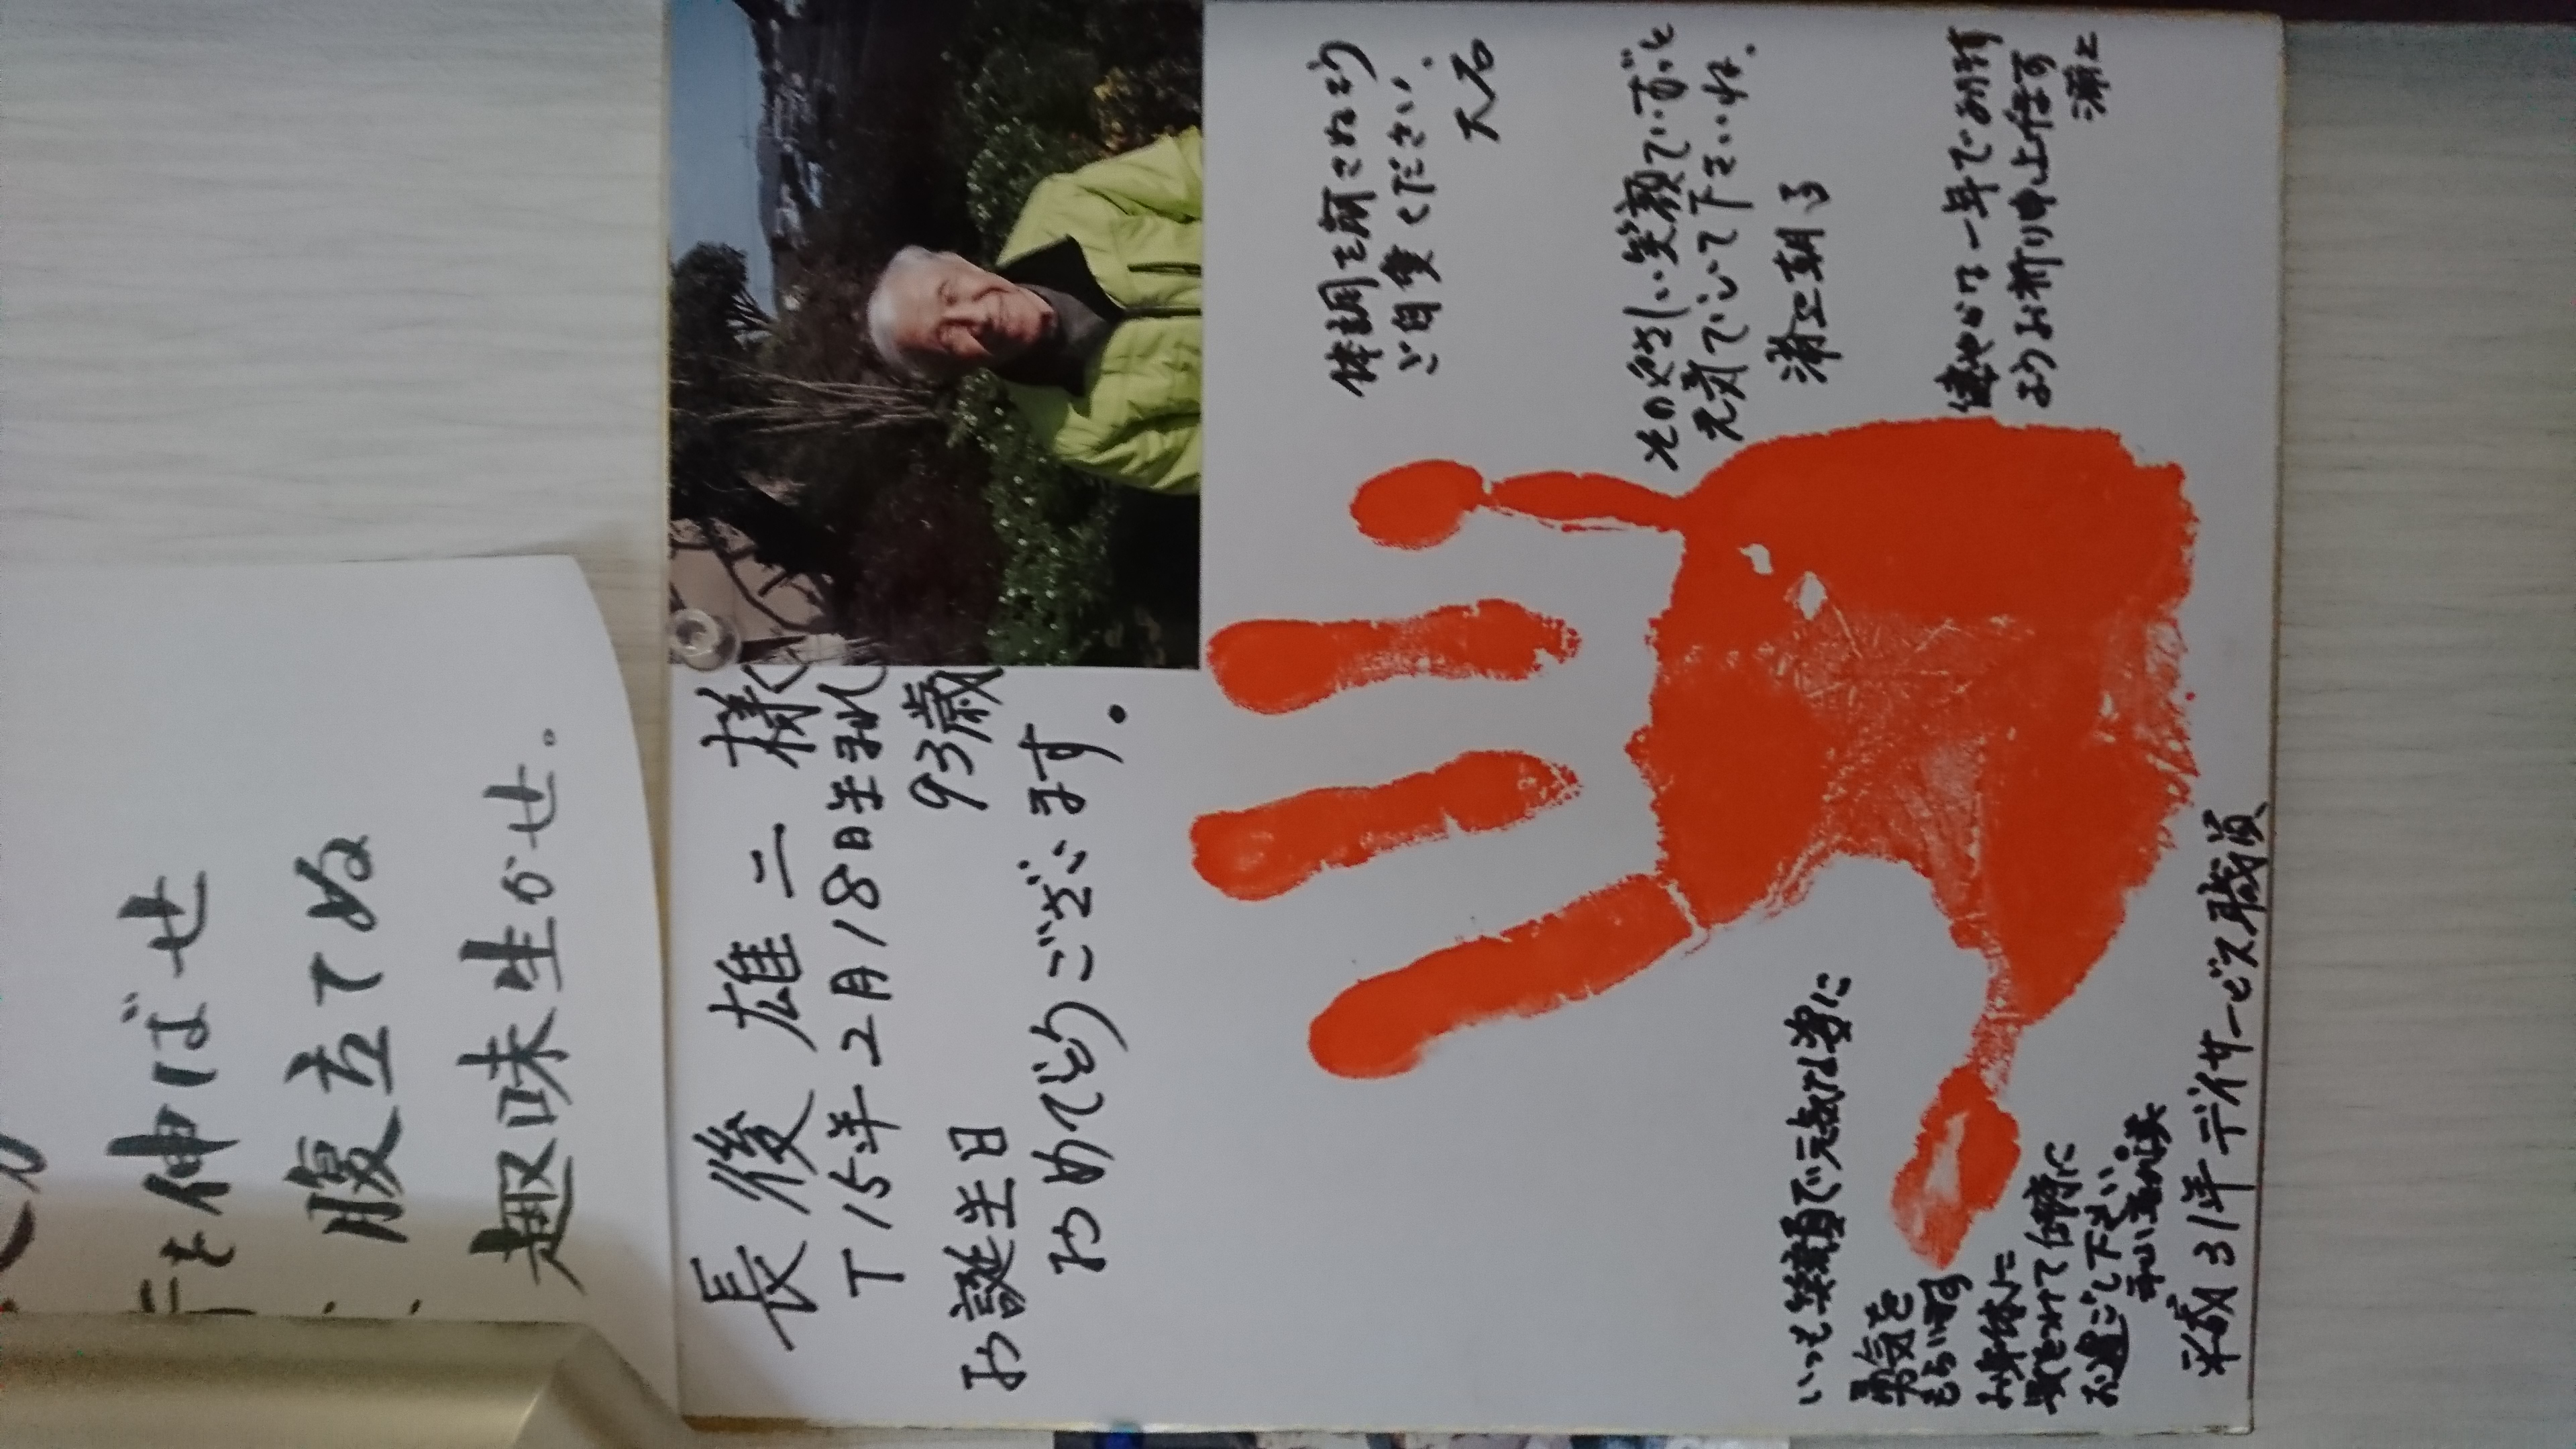 長後雄二様
T15年2月18日生まれ
93歳
お誕生日
おめでとうございます。
体調を崩されぬよう
ご自愛ください。
大石
その優しい笑顔でいつまでも
元気でいて下さいね。
健やかな一年であります
ようお祈り申し上げます
いつも笑顔で元気な姿に
勇気を
もらいます
お身体に
気をつけて
お過ごし下さい。
平成31年 デイサービス職員
を伸ばせ
腹立てぬ
趣味生かせ。